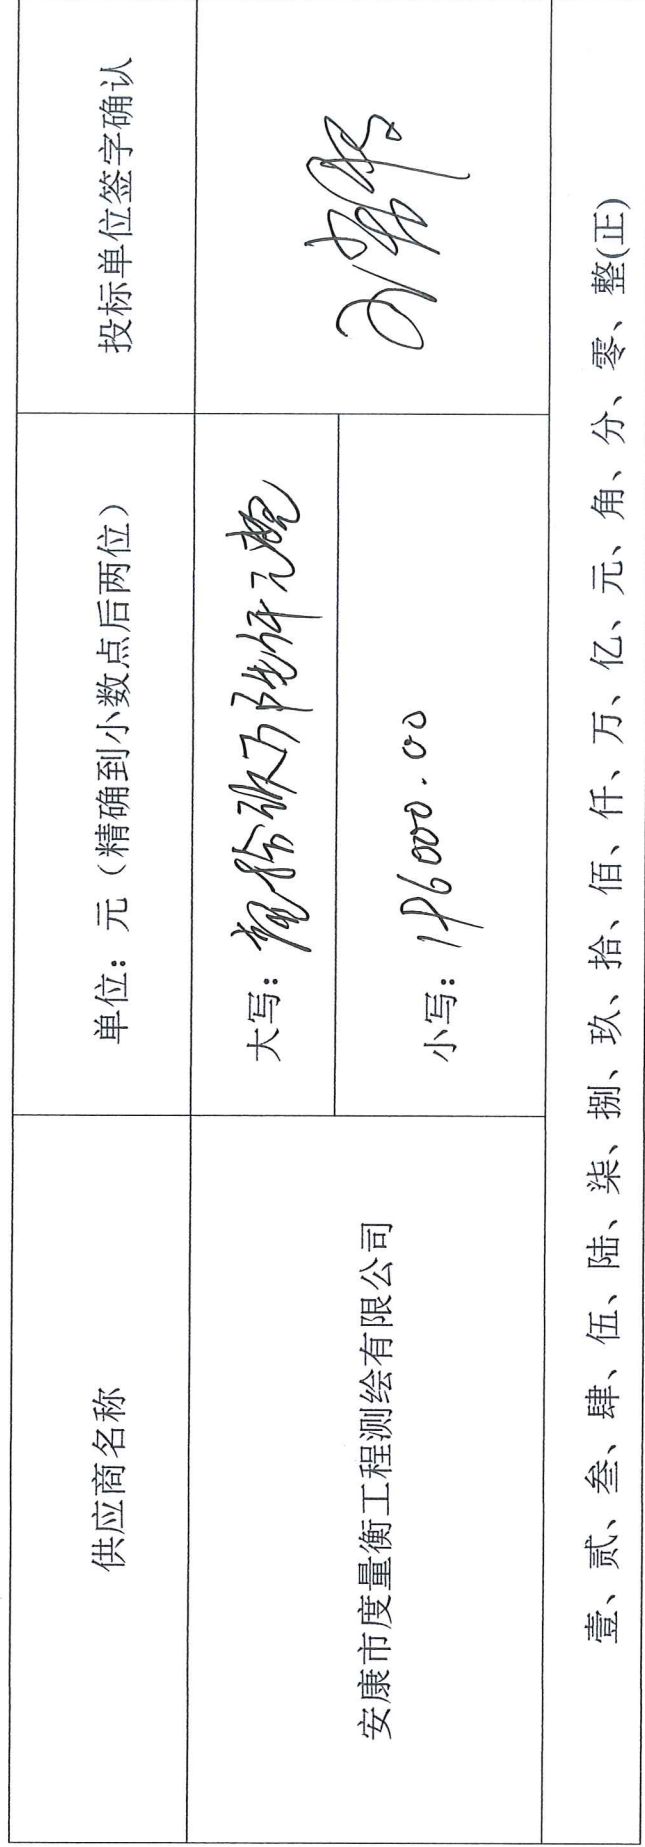 供应商名称
单位：元（精确到小数点后两位）
投标单位签字确认
安康市度量衡工程测绘有限公司
大写：壹拾玖万陆仟元整
小写：196000.00
壹、贰、叁、肆、伍、陆、柒、捌、玖、拾、佰、仟、万、亿、元、角、分、零、整(正)